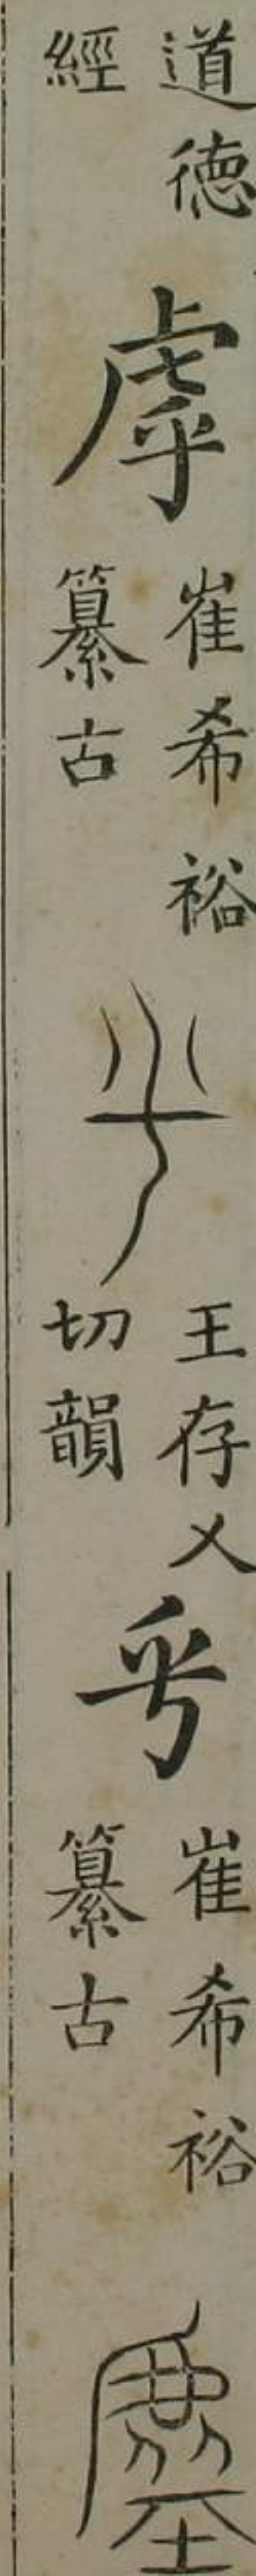 道徳
經
虖
崔希裕
纂古
王存乂
切韻
崔希裕
纂古